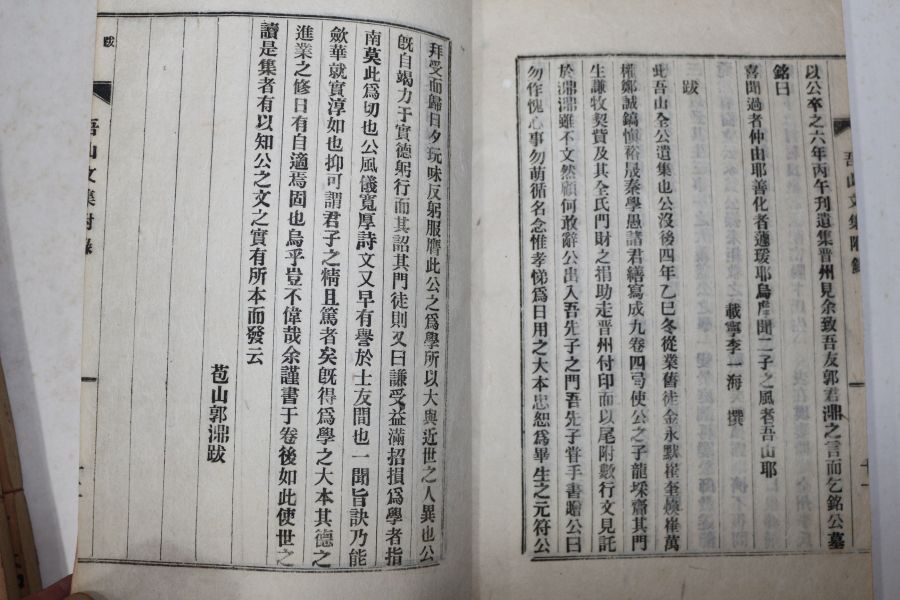 吾山文集附錄
以公卒之六年丙午刊遺集晋州見余致吾友郭君濎之言而乞銘公墓
銘曰
喜聞過者仲由耶善化者蘧瑗耶烏虖聞二子之風者吾山耶
載寧李一海 撰
跋
此吾山全公遺集也公沒後四年乙巳冬從業舊徒金永默崔奎煥崔萬
權鄭誠鎬愼裕晟秦學愚諸君繕寫成九卷四使公之子龍埰齎其門
生謙牧契貲及其全氏門財之捐助走晋州付印而以尾附數行文見託
於濎濎雖不文然顧何敢辭公出入吾先子之門吾先子甞手書贈公曰
勿作愧心事勿萌循名念惟孝悌爲日用之大本忠恕爲畢生之元符公
拜受而歸日夕玩味反躬服膺此公之爲學所以大與近世之人異也公
旣自竭力于實德躬行而其詔其門徒則又曰謙受益滿招損爲學者指
南莫此爲切也公風儀寬厚詩文又早有譽於士友間也一聞旨訣乃能
斂華就實淳如也抑可謂君子之精且篤者矣旣得爲學之大本其德之
進業之修日有自適焉固也烏乎豈不偉哉余謹書于卷後如此使世之
讀是集者有以知公之文之實有所本而發云
苞山郭濎跋
吾山文集附錄
跋